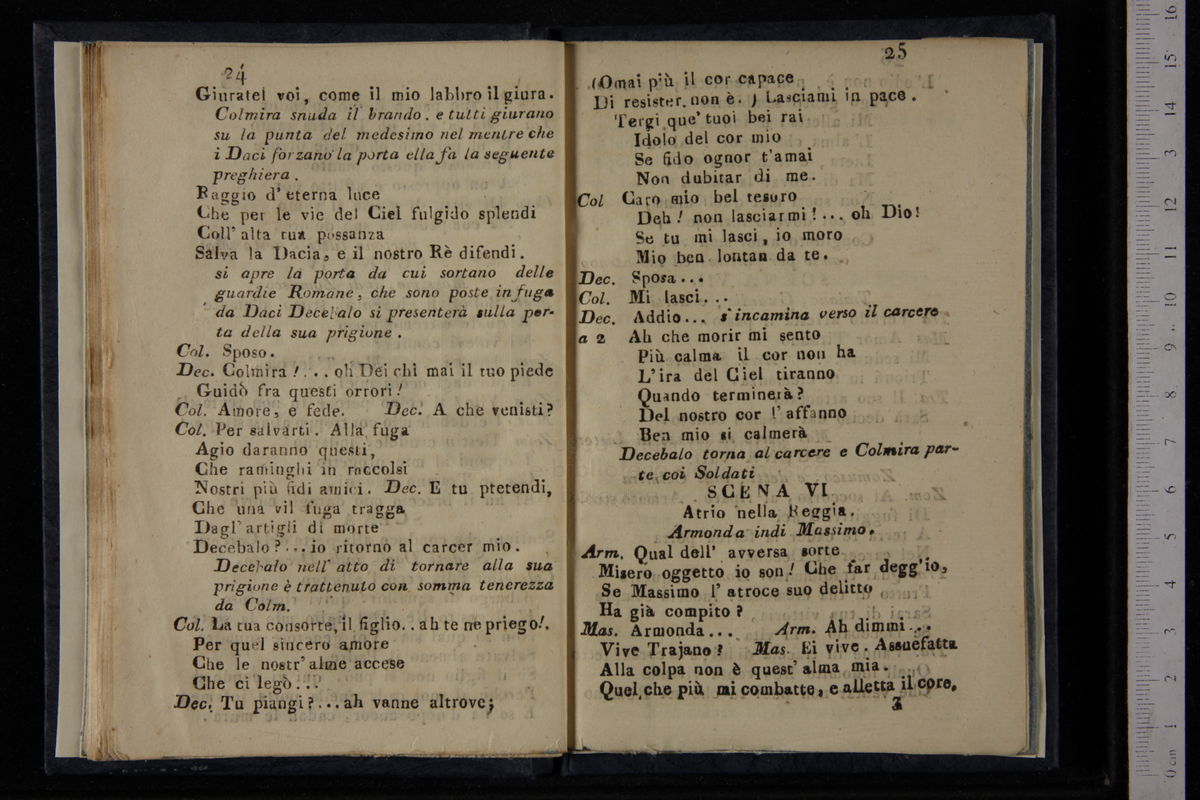 24
Giuratel voi, come il mio labbro il giura.
Colmira snuda il brando. e tutti giurano
su la punta del medesimo nel mentre che
i Daci forzano la porta ella fa la seguente
preghiera.
Raggio d' eterna luce
Che per le vie del Ciel fulgido splendi
Coll' alta tua possanza
Salva la Dacia, e il nostro Rè difendi.
si apre la porta da cui sortano delle
guardie Romane, che sono poste in fuga
da Daci Decebalo si presenterà sulla por-
ta della sua prigione.
Col. Sposo.
Dec. Colmira!... oh Dei chi mai il tuo piede
Guidò fra questi orrori!
Col. Amore, e fede. Dec. A che venisti?
Col. Per salvarti. Alla fuga
Agio daranno questi,
Che raminghi in raccolsi
Nostri più fidi amici. Dec. E tu ptetendi,
Che una vil fuga tragga
Dagl' artigli di morte
Decebalo?...io ritorno al carcer mio.
Decebalo nell' atto di tornare alla sua
prigione è trattenuto con somma tenerezza
da Colm.
Col. La tua consorte, il figlio.. ah te ne priego!.
Per quel sincero amore
Che le nostr' alme accese
Che ci legò...
Dec. Tu piangi?...ah vanne altrove;
25
(Omai più il cor capace
Di resister non è.) Lasciami in pace.
Tergi que' tuoi bei rai
Idolo del cor mio
Se fido ognor t'amai
Non dubitar di me.
Col Caro mio bel tesoro
Deh! non lasciarmi!... oh Dio!
Se tu mi lasci, io moro
Mio ben lontan da te.
Dec. Sposa...
Col. Mi lasci...
Dec. Addio... s'incamina verso il carcere
a 2 Ah che morir mi sento
Più calma il cor non ha
L'ira del Ciel tiranno
Quando terminerà?
Del nostro cor l' affanno
Ben mio si calmerà
Decebalo torna al carcere e Colmira par-
te coi Soldati
SCENA VI
Atrio nella Reggia.
Armonda indi Massimo.
Arm. Qual dell' avversa sorte
Misero oggetto io son! Che far degg'io,
Se Massimo l' atroce suo delitto
Ha già compito?
Mas. Armonda... Arm. Ah dimmi...
Vive Trajano? Mas. Ei vive. Assuefatta
Alla colpa non è quest' alma mia.
Quel che più mi combatte, e alletta il core,
3
0 cm 1 2 3 4 5 6 7 8 9 10 11 12 13 14 15 16